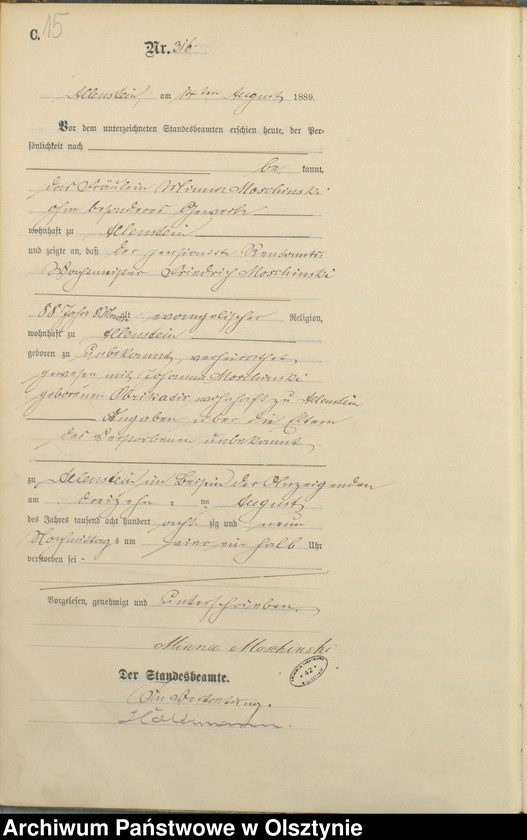 C. 15
Nr. 316
Allenstein, am 14ten August 1889.
Vor dem unterzeichneten Standesbeamten erschien heute, der Per-
sönlichkeit nach
be kannt,
das Fräulein Minna Moschinski
ohne besonderes Gewerbe
wohnhaft zu Allenstein
und zeigte an, daß der pensionirte
Wachtmeister Friedrich Moschinski
88 Jahre 8 Mon alt, evangelischer Religion,
wohnhaft zu Allenstein
geboren zu unbekannt, verheirathet
gewesen mit Johanna Moschinski
geborenen wohnhaft zu Allenstein
Angaben über die Eltern
des Verstorbenen unbekannt
zu Allenstein im Beisein der Anzeigenden
am dreizehn ten August
des Jahres tausend acht hundert acht zig und neun
Nachmittags um vier ein halb Uhr
verstorben sei
Vorgelesen, genehmigt und unterschrieben.
Minna Moschinski
Der Standesbeamte.
In Vertretung.
42
Archiwum Państwowe w Olsztynie